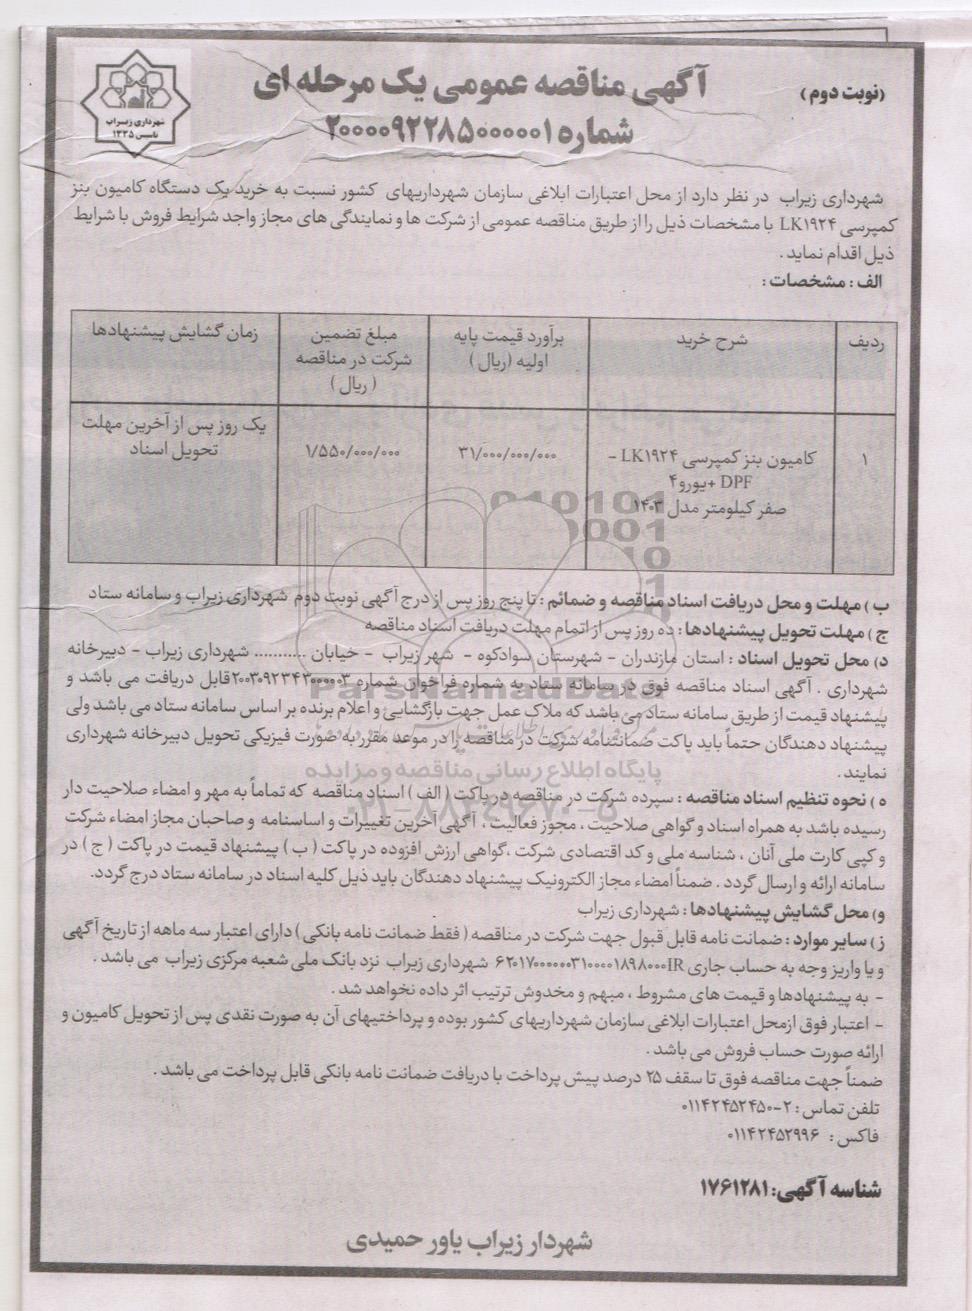 (نوبت دوم)
آگهی مناقصه عمومی یک مرحله ای
شماره ۲۰۰۰۰۹۲۲۸۵۰۰۰۰۰۱
شهرداری زیراب
تاسیس ۱۳۳۵
شهرداری زیراب در نظر دارد از محل اعتبارات ابلاغی سازمان شهرداریهای کشور نسبت به خرید یک دستگاه کامیون بنز
کمپرسی LK۱۹۲۴ با مشخصات ذیل را از طریق مناقصه عمومی از شرکت ها و نمایندگی های مجاز واجد شرایط فروش با شرایط
ذیل اقدام نماید .
الف : مشخصات :
ردیف
شرح خرید
برآورد قیمت پایه
اولیه (ریال)
مبلغ تضمین
شرکت در مناقصه
(ریال)
زمان گشایش پیشنهادها
۱
کامیون بنز کمپرسی LK۱۹۲۴ –
DPF +یورو۴
صفر کیلومتر مدل ۱۴۰۳
۳۱/۰۰۰/۰۰۰/۰۰۰
۱/۵۵۰/۰۰۰/۰۰۰
یک روز پس از آخرین مهلت
تحویل اسناد
ب) مهلت و محل دریافت اسناد مناقصه و ضمائم : تا پنج روز پس از درج آگهی نوبت دوم شهرداری زیراب و سامانه ستاد
ج) مهلت تحویل پیشنهادها : ده روز پس از اتمام مهلت دریافت اسناد مناقصه
د) محل تحویل اسناد : استان مازندران – شهرستان سوادکوه – شهر زیراب – خیابان ........... شهرداری زیراب – دبیرخانه
شهرداری . آگهی اسناد مناقصه فوق در سامانه ستاد به شماره فراخوان شماره ۲۰۰۳۰۹۲۳۴۳۰۰۰۰۰۳ قابل دریافت می باشد و
پیشنهاد قیمت از طریق سامانه ستاد می باشد که ملاک عمل جهت بازگشایی و اعلام برنده بر اساس سامانه ستاد می باشد ولی
پیشنهاد دهندگان حتماً باید پاکت ضمانتنامه شرکت در مناقصه را در موعد مقرر به صورت فیزیکی تحویل دبیرخانه شهرداری
نمایند .
ParsNamadData
پایگاه اطلاع رسانی مناقصه و مزایده
۰۲۱–۸۸۳۴۹۶۷۰–۵
ه) نحوه تنظیم اسناد مناقصه : سپرده شرکت در مناقصه در پاکت (الف) اسناد مناقصه که تماماً به مهر و امضاء صلاحیت دار
رسیده باشد به همراه اسناد و گواهی صلاحیت ، مجوز فعالیت ، آگهی آخرین تغییرات و اساسنامه و صاحبان مجاز امضاء شرکت
و کپی کارت ملی آنان ، شناسه ملی و کد اقتصادی شرکت ،گواهی ارزش افزوده در پاکت (ب) پیشنهاد قیمت در پاکت (ج) در
سامانه ارائه و ارسال گردد . ضمناً امضاء مجاز الکترونیک پیشنهاد دهندگان باید ذیل کلیه اسناد در سامانه ستاد درج گردد.
و) محل گشایش پیشنهادها : شهرداری زیراب
ز) سایر موارد : ضمانت نامه قابل قبول جهت شرکت در مناقصه (فقط ضمانت نامه بانکی) دارای اعتبار سه ماهه از تاریخ آگهی
و یا واریز وجه به حساب جاری IR۶۲۰۱۷۰۰۰۰۰۰۳۱۰۰۰۰۱۸۹۸۰۰۰ شهرداری زیراب نزد بانک ملی شعبه مرکزی زیراب می باشد .
– به پیشنهادها و قیمت های مشروط ، مبهم و مخدوش ترتیب اثر داده نخواهد شد .
– اعتبار فوق ازمحل اعتبارات ابلاغی سازمان شهرداریهای کشور بوده و پرداختیهای آن به صورت نقدی پس از تحویل کامیون و
ارائه صورت حساب فروش می باشد .
ضمناً جهت مناقصه فوق تا سقف ۲۵ درصد پیش پرداخت با دریافت ضمانت نامه بانکی قابل پرداخت می باشد .
تلفن تماس : ۲–۰۱۱۴۲۴۵۲۴۵۰
فاکس : ۰۱۱۴۲۴۵۲۹۹۶
شناسه آگهی: ۱۷۶۱۲۸۱
شهردار زیراب یاور حمیدی